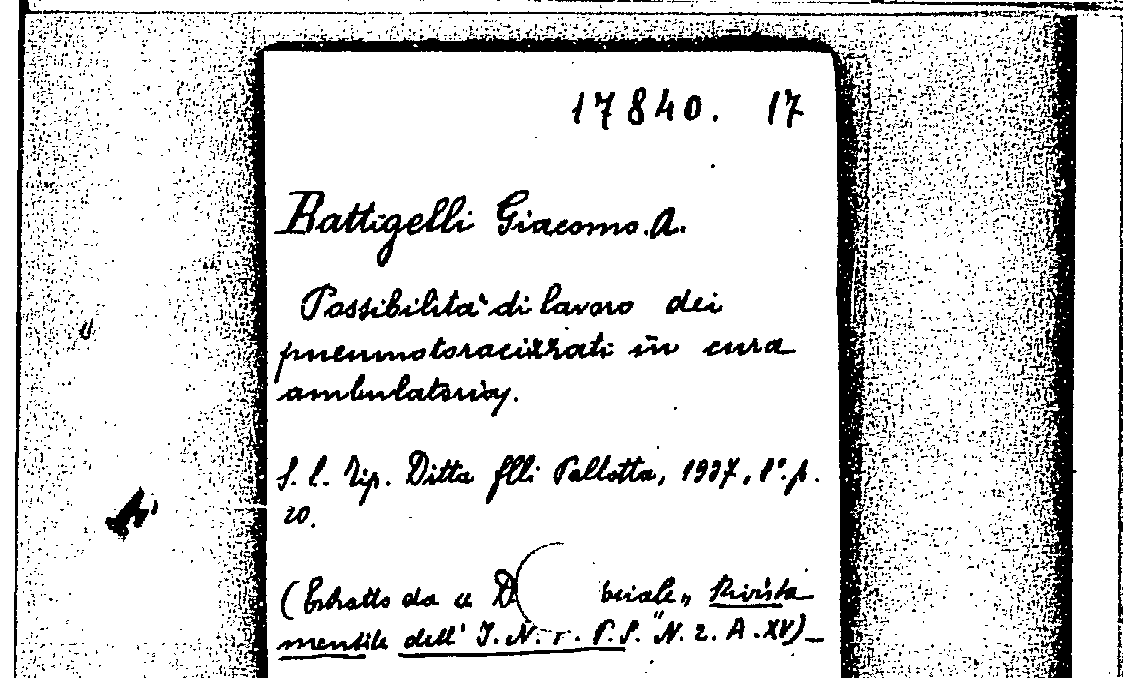 17840. 17
Battigelli Giacomo. A.
Possibilita' di lavoro dei
pneumotoracizzati in cura
ambulatoria.
S. l. Tip. Ditta flli Pallotta, 1937, 8°. p.
20.
(Estratto da " Rivista
mensile dell' I. N. P. S." N. 2. A. XV)_